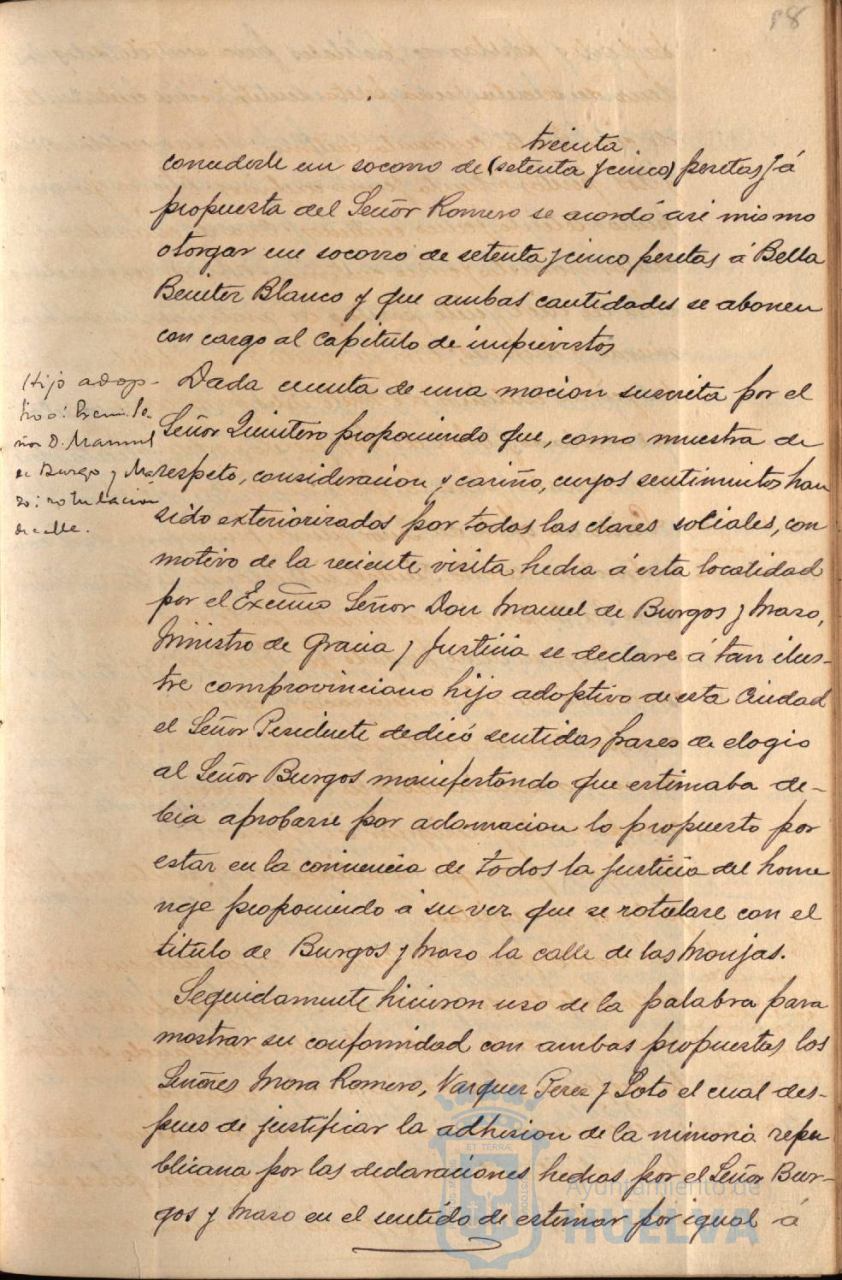 98
treinta
concederle un socorro de (setenta y cinco) pesetas y á
propuesta del Señor Romero se acordó asi mismo
otorgar un socorro de setenta y cinco pesetas á Bella
Benitez Blanco y que ambas cantidades se abonen
con cargo al Capitulo de imprevistos
Hijo adop-
tivo: Excmo. Se-
ñor D. Manuel
de Burgo y Ma
zo: rotulacion
de calle.
Dada cuenta de una mocion suscrita por el
Señor Quintero proponiendo que, como muestra de
respeto, consideracion y cariño, cuyos sentimientos han
sido exteriorizados por todas las clases sociales, con
motivo de la reciente visita hecha á esta localidad
por el Excmo Señor Don Manuel de Burgos y Mazo,
Ministro de Gracia y Justicia se declare á tan ilus-
tre comprovinciano hijo adoptivo de esta Ciudad
el Señor Presidente dedicó sentidas frases de elogio
al Señor Burgos manifestando que estimaba de-
bia aprobarse por aclamacion lo propuesto por
estar en la conciencia de todos la justicia del home
nage proponiendo á su vez que se rotulase con el
titulo de Burgos y Mazo la calle de las Monjas.
Seguidamente hicieron uso de la palabra para
mostrar su conformidad con ambas propuestas los
Señores Mora Romero, Vazquez Perez y Soto el cual des-
pues de justificar la adhesion de la minoria repu
blicana por las declaraciones hechas por el Señor Bur-
gos y Mazo en el sentido de estimar por igual á
Ayuntamiento de
HUELVA